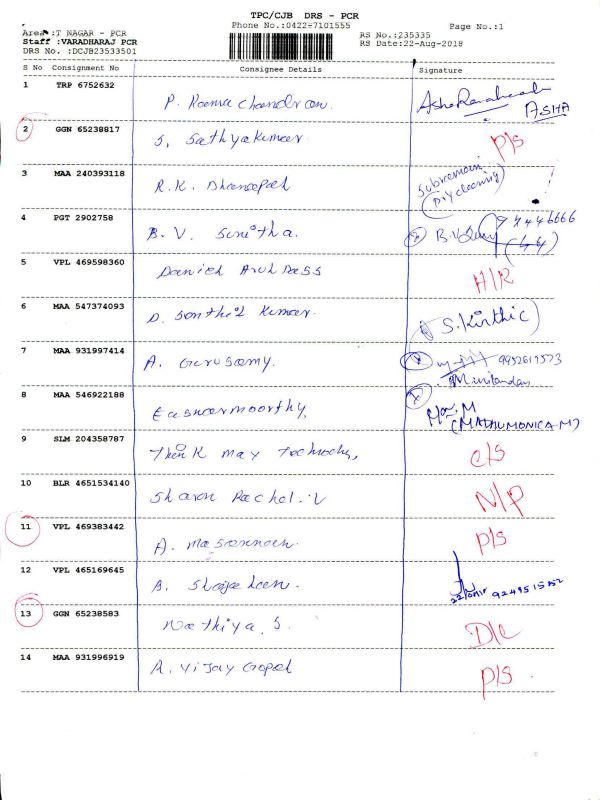 TPC/CJB DRS - PCR
Phone No.:0422-7101555
Page No.:1
Area :T NAGAR - PCR
RS No.:235335
Staff :VARADHARAJ PCR
RS Date:22-Aug-2018
DRS No. :DCJB23533501
S No Consignment No Consignee Details Signature
1 TRP 6752632 P. Rama chandran. ASHA
2 GGN 65238817 S. Sathyakumar P/S
3 MAA 240393118 R.K. Dhanapal
4 PGT 2902758 B. V. Sunitha.
5 VPL 469598360 Daniel Arul Dass H/R
6 MAA 547374093 D. Senthil Kumar. S. Kirthic
7 MAA 931997414 A. Gurusamy.
8 MAA 546922188 Easwarmoorthy, (MADHUMONICA.M)
9 SLM 204358787 Think may C/S
10 BLR 4651534140 Sharon Rachel. V N/P
11 VPL 469383442 A. P/S
12 VPL 465169645 B. Shajahan.
13 GGN 65238583 Nathiya. S. D/C
14 MAA 931996919 A. Vijay Gopal P/S